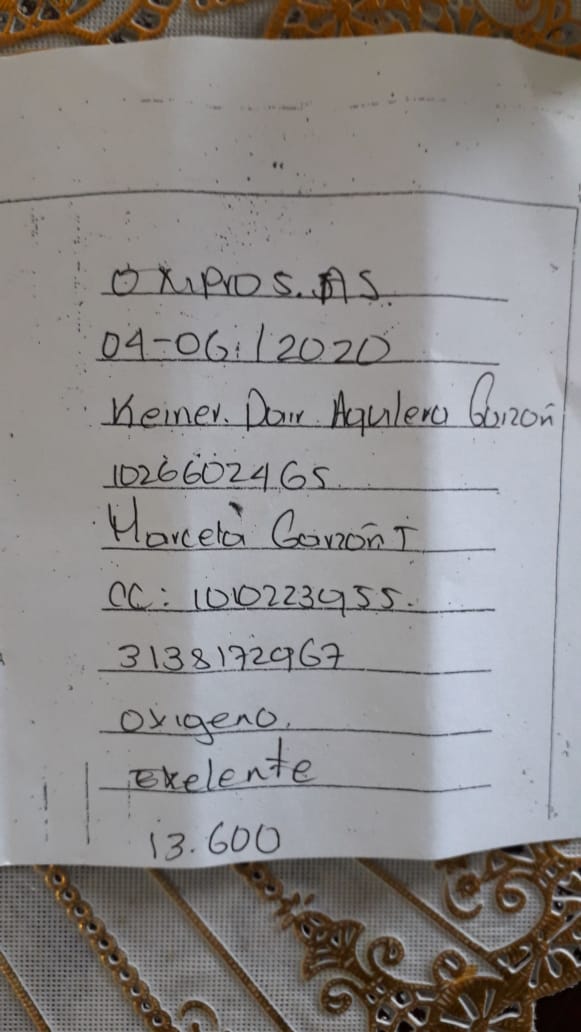 OXIPRO S.AS.
04-06:/2020
Keiner. Dair Aguilera Garzoñ
1026602465
Marcela Garzoñ T
CC: 1010223955.
3138172967
oxigeno.
Exelente
13.600